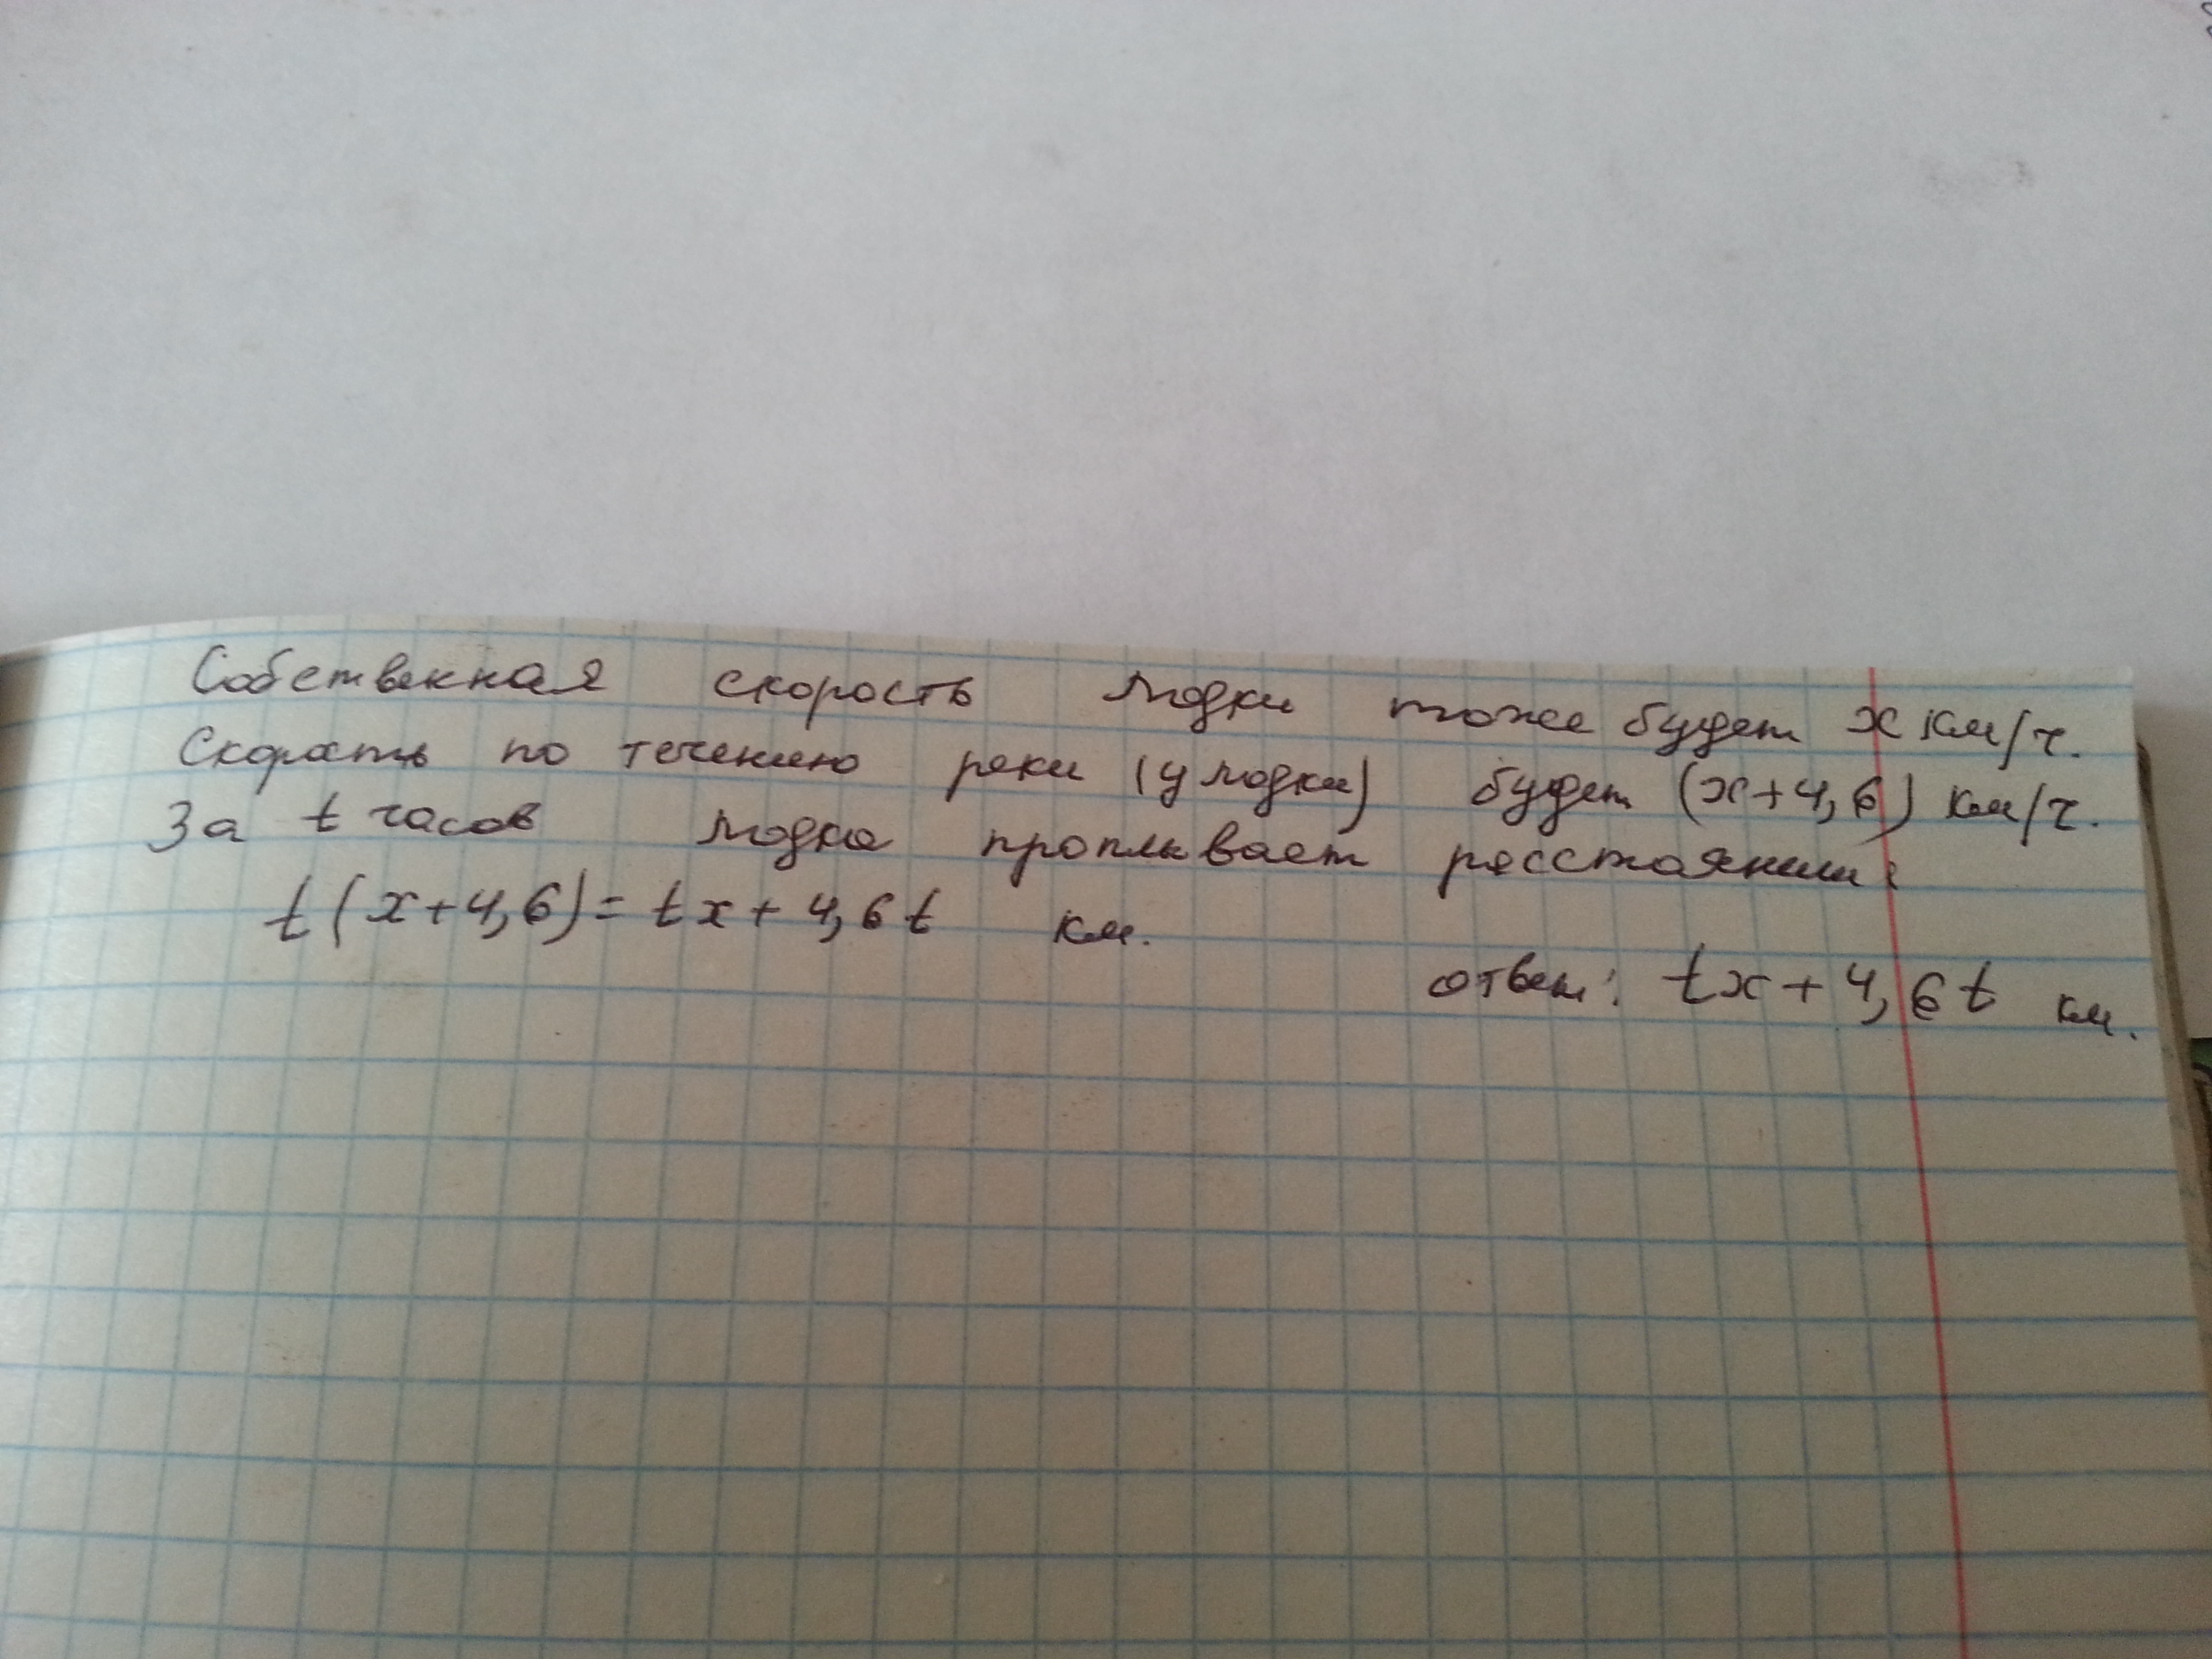 Собственная скорость лодки тоже будет x км/ч.
Скорость по течению реки (у лодки) будет (x+4,6) км/ч.
За t часов лодка проплывает расстояние:
t(x+4,6)= tx+4,6t км.
ответ: tx+4,6t км.